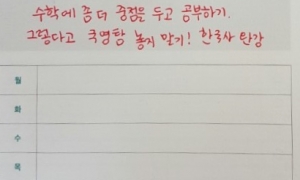 수학에 좀 더 중점을 두고 공부하기.
그렇다고 국영탐 놓지 말기! 한국사 탄강
월
화
수
목